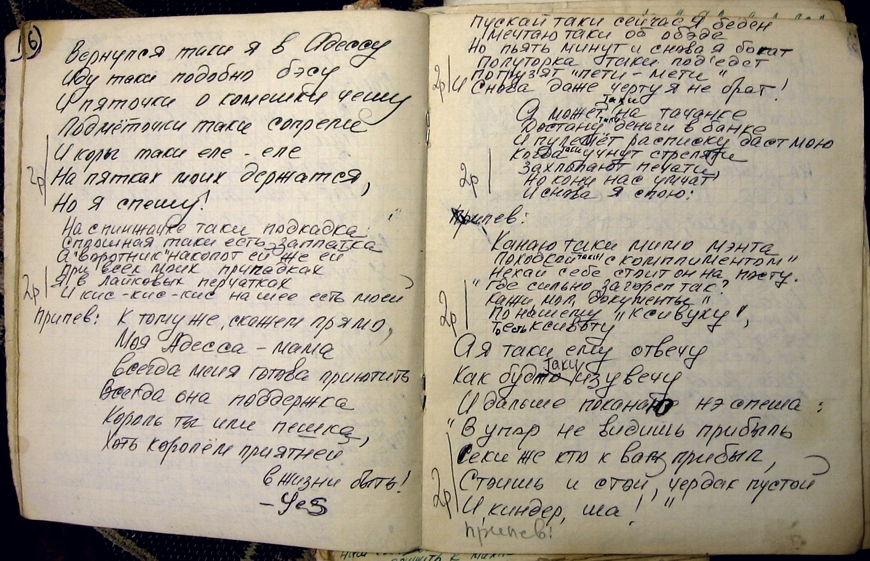 16
Вернулся таки я в Адессу
Иду таки подобно бэсу
И пяточки о комешки чешу
Подмёточки таки сопрели
И коры таки еле - еле
2р На пятках моих держатся,
Но я спешу!
На спинжаке таки подкадка
Сплошная таки есть заплатка
А "воротник" накопот ей же ей
При всех моих припадках
2р Я в лайковых перчатках
И кис-кис-кис на шее есть моей
Припев: К тому же, скажем прямо,
Моя Адесса - мама
Всегда меня готова приютить
Всегда она поддержка
Король ты или пешка,
Хоть королём приятней
в жизни быть!
- Yes
Пускай таки сейчас я беден
Мечтаю таки об обэде
Но пьять минут и снова я богат
Полуторка таки под'едет
Погрузят "пети - мети"
2р И снова даже черту я не брат!
А может таки на тачанке
Достану таки деньги в банке
И пулемёт расписку даст мою
Когда таки учнут стреляти
Захлопают печати,
2р Но кони нас умчат
И снова я спою:
Припев:
Канаю таки мимо мэнта
Походкой таки "с комплиментом"
Нехай себе стоит он на посту.
"Где сильно загорел так?
Кажи мол, документы".
2р По нашему "Ксивуху",
То есть ксивоту
А я таки ему отвечу
Как будто таки изувечу
И дальше поканаю нэ спеша:
"В упор не видишь прибыль
Секи же кто к вам прибыл,
2р Стоишь и стой, чердак пустой
И киндер, ша!"
припев: